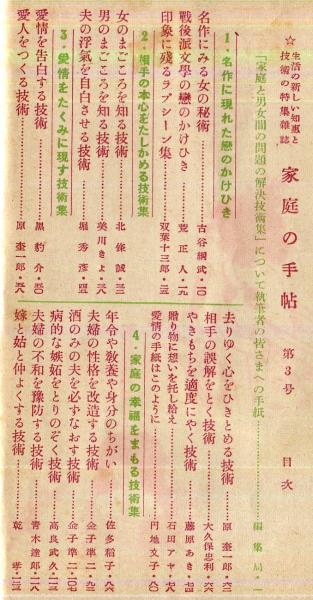 ☆生活の新しい知恵と
技術の特集雑誌
家庭の手帖 第3号 目次
「家庭と男女間の問題の解決技術集」について執筆者の皆さまへの手紙………編集局・一
1・名作に現れた戀のかけひき
名作にみる女の秘術………古谷綱武・一〇
戰後派文學の戀のかけひき………荒正人・一九
印象に殘るラブシーン集………双葉十三郎・三
2・相手の本心をたしかめる技術集
女のまごころを知る技術………北條誠・三
男のまごころを知る技術………美川きよ・三
夫の浮氣を自白させる技術………堀秀彦・四
3・愛情をたくみに現す技術集
愛情を告白する技術………黒豹介・五〇
愛人をつくる技術………原奎一郎・五八
去りゆく心をひきとめる技術………原奎一郎・六
相手の誤解をとく技術………大久保忠利・六
やきもちを適度にやく技術………藤原あき・七
贈り物に想いを托し給え………石田アヤ・七
愛情の手紙はこのように………円地文子・八〇
4・家庭の幸福をまもる技術集
年令や敎養や身分のちがい………佐多稻子・八六
夫婦の性格を改造する技術………金子準二・九
酒のみの夫を必ずなおす技術………金子準二・一〇七
病的な嫉妬をとりのぞく技術………高良武久・一三
夫婦の不和を豫防する技術………青木達郎・一八
嫁と姑と仲よくする技術………乾孝・一三